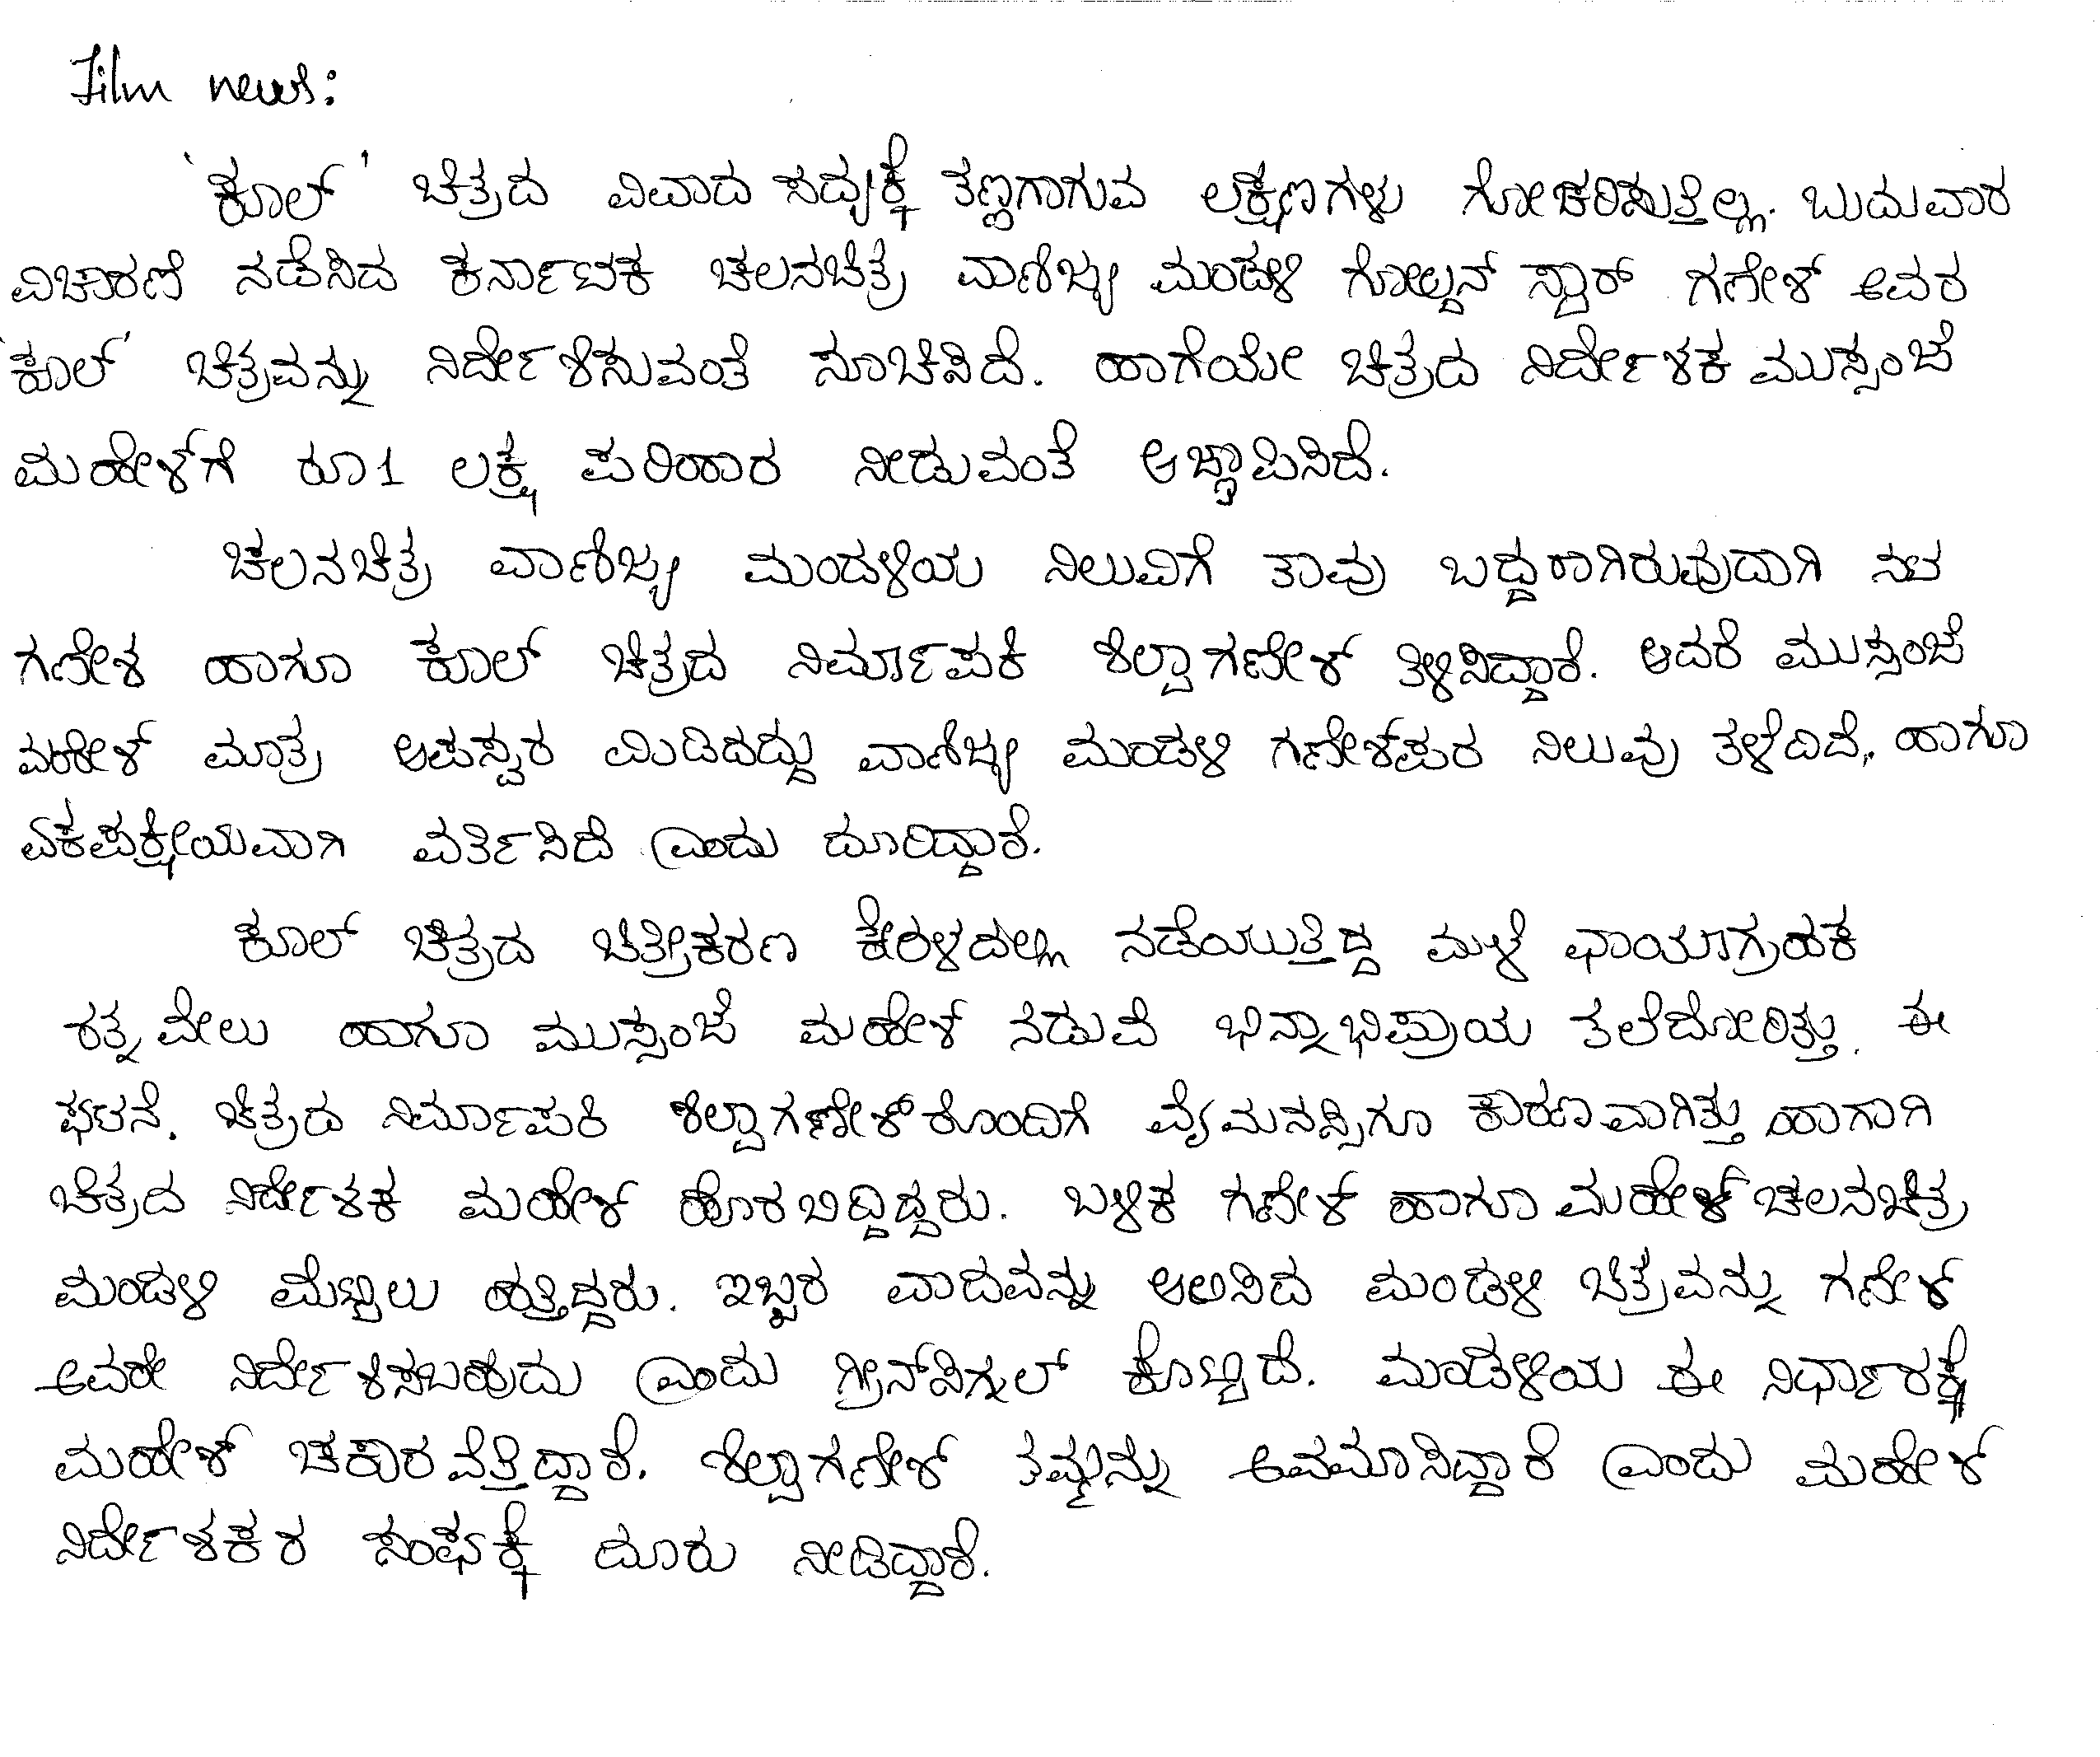 Film news:
'ಕೂಲ್' ಚಿತ್ರದ ವಿವಾದ ಸಧ್ಯಕ್ಕೆ ತಣ್ಣಗಾಗುವ ಲಕ್ಷಣಗಳು ಗೋಚರಿಸುತ್ತಿಲ್ಲ. ಬುದುವಾರ
ವಿಚಾರಣೆ ನಡೆಸಿದ ಕರ್ನಾಟಕ ಚಲನಚಿತ್ರ ವಾಣಿಜ್ಯ ಮಂಡಳಿ ಗೋಲ್ಡನ್ ಸ್ಟಾರ್ ಗಣೇಶ್ ಅವರ
'ಕೂಲ್' ಚಿತ್ರವನ್ನು ನಿರ್ದೇಶಿಸುವಂತೆ ಸೂಚಿಸಿದೆ. ಹಾಗೆಯೇ ಚಿತ್ರದ ನಿರ್ದೇಶಕ ಮುಸ್ಸಂಜೆ
ಮಹೇಶ್‌ಗೆ ರೂ 1 ಲಕ್ಷ ಪರಿಹಾರ ನೀಡುವಂತೆ ಆಜ್ಞಾಪಿಸಿದೆ.
ಚಲನಚಿತ್ರ ವಾಣಿಜ್ಯ ಮಂಡಳಿಯ ನಿಲುವಿಗೆ ತಾವು ಬದ್ದರಾಗಿರುವುದಾಗಿ ನಟ
ಗಣೇಶ ಹಾಗೂ ಕೂಲ್ ಚಿತ್ರದ ನಿರ್ಮಾಪಕಿ ಶಿಲ್ಪಾಗಣೇಶ್ ತಿಳಿಸಿದ್ದಾರೆ. ಆದರೆ ಮುಸ್ಸಂಜೆ
ಮಹೇಶ್ ಮಾತ್ರ ಅಪಸ್ವರ ಮಿಡಿದದ್ದು ವಾಣಿಜ್ಯ ಮಂಡಳಿ ಗಣೇಶ್‌ಪರ ನಿಲುವು ತಳೆದಿದೆ, ಹಾಗೂ
ಏಕಪಕ್ಷೀಯವಾಗಿ ವರ್ತಿಸಿದೆ ಎಂದು ದೂರಿದ್ದಾರೆ.
ಕೂಲ್ ಚಿತ್ರದ ಚಿತ್ರೀಕರಣ ಕೇರಳದಲ್ಲಿ ನಡೆಯುತ್ತಿದ್ದ ಮಳೆ ಛಾಯಾಗ್ರಹಕ
ರತ್ನವೇಲು ಹಾಗೂ ಮುಸ್ಸಂಜೆ ಮಹೇಶ್ ನಡುವೆ ಭಿನ್ನಾಭಿಪ್ರಾಯ ತಲೆದೋರಿತ್ತು. ಈ
ಘಟನೆ. ಚಿತ್ರದ ನಿರ್ಮಾಪಕಿ ಶಿಲ್ಪಾಗಣೇಶ್‌ರೊಂದಿಗೆ ವೈಮನಸ್ಸಿಗೂ ಕಾರಣವಾಗಿತ್ತು ಹಾಗಾಗಿ
ಚಿತ್ರದ ನಿರ್ದೇಶಕ ಮಹೇಶ್ ಹೊರಬಿದ್ದಿದ್ದರು. ಬಳಿಕ ಗಣೇಶ್ ಹಾಗೂ ಮಹೇಶ್ ಚಲನಚಿತ್ರ
ಮಂಡಳಿ ಮೆಟ್ಟಿಲು ಹತ್ತಿದ್ದರು. ಇಬ್ಬರ ವಾದವನ್ನು ಆಲಿಸಿದ ಮಂಡಳಿ ಚಿತ್ರವನ್ನು ಗಣೇಶ್
ಅವರೇ ನಿರ್ದೇಶಿಸಬಹುದು ಎಂದು ಗ್ರೀನ್‌ಸಿಗ್ನಲ್ ಕೊಟ್ಟಿದೆ. ಮಂಡಳಿಯ ಈ ನಿರ್ಧಾರಕ್ಕೆ
ಮಹೇಶ್ ಚಕಾರವೆತ್ತಿದ್ದಾರೆ. ಶಿಲ್ಪಾಗಣೇಶ್ ತಮ್ಮನ್ನು ಅವಮಾನಿಸಿದ್ದಾರೆ ಎಂದು ಮಹೇಶ್
ನಿರ್ದೇಶಕರ ಸಂಘಕ್ಕೆ ದೂರು ನೀಡಿದ್ದಾರೆ.